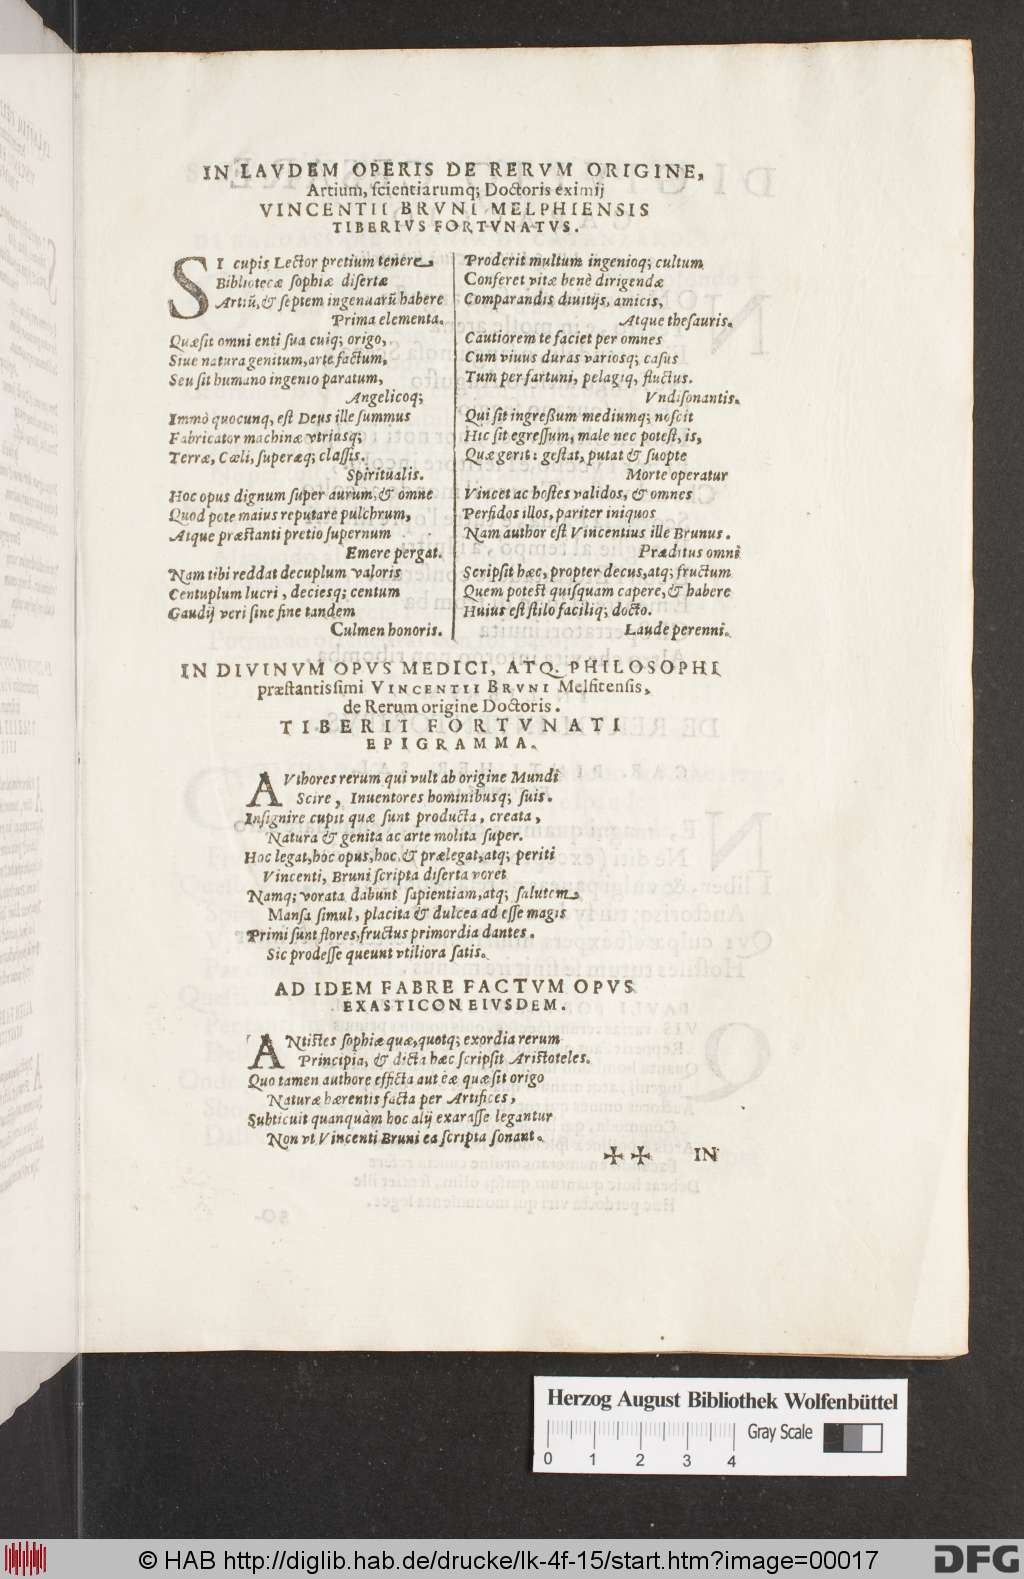 IN LAVDEM OPERIS DE RERVM ORIGINE,
Artium, scientiarumq; Doctoris eximij
VINCENTII BRVNI MELPHIENSIS
TIBERIVS FORTVNATVS.
SI cupis Lector pretium tenere
Bibliotecæ sophiæ disertæ
Artiũ, & septem ingenuarũ habere
Prima elementa.
Quæsit omni enti sua cuiq; origo,
Siue natura genitum, arte factum,
Seu sit humano ingenio paratum,
Angelicoq;
Immò quocunq, est Deus ille summus
Fabricator machinæ vtriusq;
Terræ, Cœli, superæq; classis.
Spiritualis.
Hoc opus dignum super aurum, & omne
Quod pote maius reputare pulchrum,
Atque præstanti pretio supernum
Emere pergat.
Nam tibi reddat decuplum valoris
Centuplum lucri, deciesq; centum
Gaudij veri sine fine tandem
Culmen honoris.
Proderit multum ingenioq; cultum
Conferet vitæ benè dirigendæ
Comparandis diuitijs, amicis,
Atque thesauris.
Cautiorem te faciet per omnes
Cum viuus duras variosq; casus
Tum per fartuni, pelagiq, fluctus.
Vndisonantis.
Qui sit ingreßum mediumq; noscit
Hic sit egressum, male nec potest, is,
Quæ gerit: gestat, putat & suopte
Morte operatur
Vincet ac hostes validos, & omnes
Perfidos illos, pariter iniquos
Nam author est Vincentius ille Brunus.
Præditus omnẽ
Scripsit hæc, propter decus, atq; fructum
Quem potest quisquam capere, & habere
Huius est stilo faciliq; docto.
Laude perenni.
IN DIVINVM OPVS MEDICI, ATQ. PHILOSOPHI
præstantissimi VINCENTII BRVNI Melfitensis,
de Rerum origine Doctoris.
TIBERII FORTVNATI
EPIGRAMMA.
AVthores rerum qui vult ab origine Mundi
Scire, Inuentores hominibusq; suis.
Insignire cupit quæ sunt producta, creata,
Natura & genita ac arte molita super.
Hoc legat, hoc opus, hoc & prælegat, atq; periti
Vincenti, Bruni scripta diserta voret
Namq; vorata dabunt sapientiam, atq; salutem
Mansa simul, placita & dulcea ad esse magis
Primi sunt flores, fructus primordia dantes.
Sic prodesse queunt vtiliora satis.
AD IDEM FABRE FACTVM OPVS
EXASTICON EIVSDEM.
ANtistes sophiæ quæ, quotq; exordia rerum
Principia, & dicta hæc scripsit Aristoteles.
Quo tamen authore efficta aut eæ quæsit origo
Naturæ hærentis facta per Artifices,
Subticuit quanquàm hoc alij exarasse legantur
Non vt Vincenti Bruni ea scripta sonant.
IN
Herzog August Bibliothek Wolfenbüttel
Gray Scale
0 1 2 3 4
© HAB http://diglib.hab.de/drucke/lk-4f-15/start.htm?image=00017
DFG